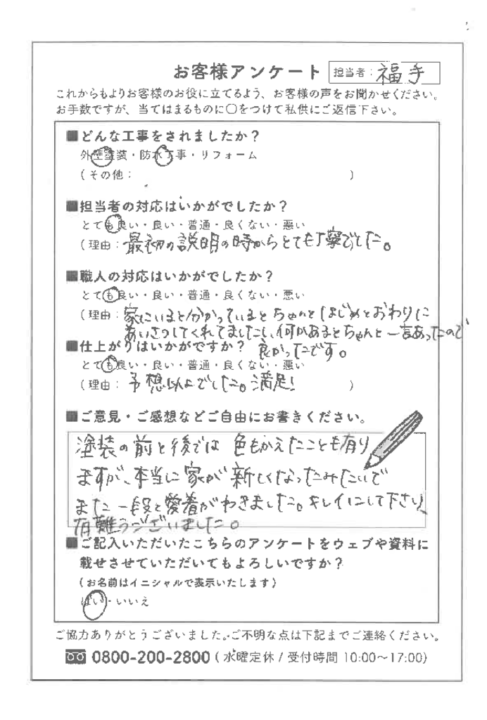 お客様アンケート 担当者：福手
これからもよりお客様のお役に立てるよう、お客様の声をお聞かせください。
お手数ですが、当てはまるものに○をつけて私供にご返信下さい。
■どんな工事をされましたか？
外壁塗装・防水工事・リフォーム
（その他： ）
■担当者の対応はいかがでしたか？
とても良い・良い・普通・良くない・悪い
（理由：最初の説明の時からとても丁寧でした。
■職人の対応はいかがでしたか？
とても良い・良い・普通・良くない・悪い
（理由：家にいると分かっているとちゃんとはじめとおわりに
あいさつしてくれてましたし、何かあるとちゃんと一言あったので
良かったです。
■仕上がりはいかがですか？
とても良い・良い・普通・良くない・悪い
（理由：予想以上でした。満足！ ）
■ご意見・ご感想などご自由にお書きください。
塗装の前と後では 色もかえたことも有り
ますが、本当に家が新しくなったみたいで
また一段と愛着がわきました。キレイにして下さり、
有難うございました。
■ご記入いただいたこちらのアンケートをウェブや資料に
載せさせていただいてもよろしいですか？
（お名前はイニシャルで表示いたします）
はい・いいえ
ご協力ありがとうございました。ご不明な点は下記までご連絡ください。
0800-200-2800（水曜定休 / 受付時間 10:00～17:00）